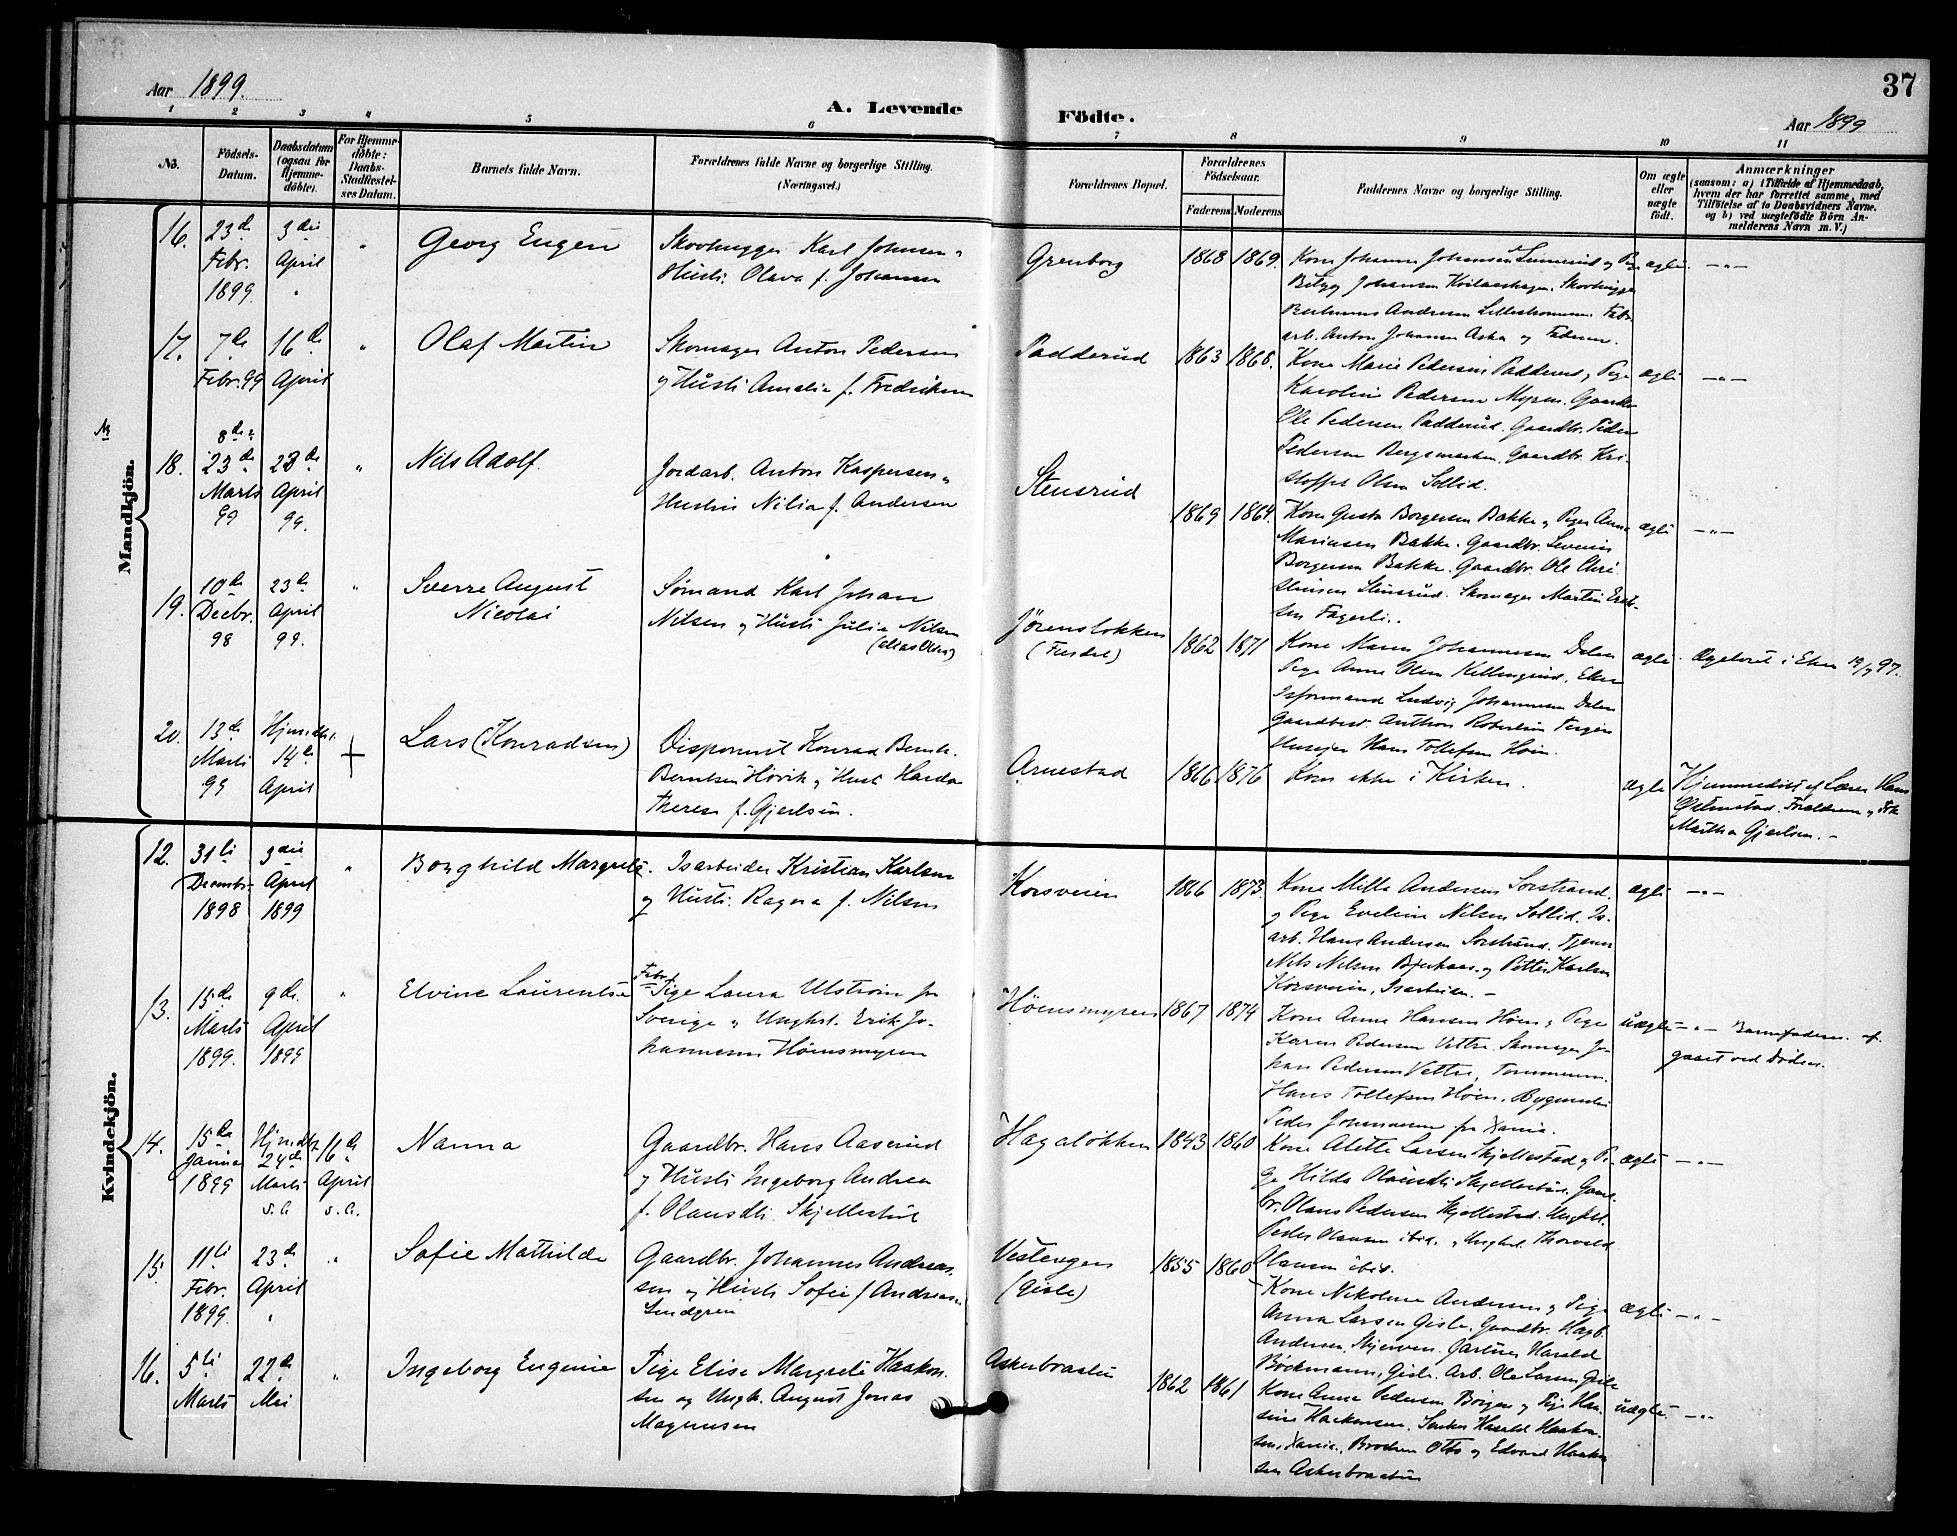 37
Aar 1899.
A. Levende
Födte.
Aar 1899
1 2 3 4 5 6 7 8 9 10 11
No.
Födsels-Datum.
Daabsdatum (ogsaa for Hjemme-döbte).
For Hjemme-döbte: Daabs-Stadfæstel-ses Datum.
Barnets fulde Navn.
Forældrenes fulde Navne og borgerlige Stilling.
(Næringsvei.)
Forældrenes Bopæl.
Forældrenes Födselsaar.
Faderens Moderens
Faddernes Navne og borgerlige Stilling.
Om ægte eller uægte födt.
Anmærkninger
(saasom: a) i Tilfælde af Hjemmedaab,
hvem der har forrettet samme, med
Tilföielse af to Daabsvidners Navne,
og b) ved uægtefödte Börn An-
melderens Navn m. V.)
Mandkjön.
16. 23de Febr. 1899. 3die April " "
Georg Eugen
Skovhugger Karl Johnsen "
Hustr. Olava f. Johansen
Grenborg
1868 1869.
Kone Johanne Johansen Linnerud og Pige
Johansen Skovhugger
Andresen Fabr.
arb. Anton Johansen Asker og Faderen.
ægte. — " —
17. 7de Febr. 99 16de April "
Olaf Martin
Skomager Anton Pedersen
og Hustr. Amalie f. Fredriksen
Padderud
1863 1868.
Kone Marie Pedersen Padderud og Pige
Karoline Pedersen Myren. Gaardbr.
Ole Pedersen Padderud. Gaardbr. Peder
Pedersen Bergsmarken. Gaardbr. Kri-
stoffer Olsen Sollid.
ægte — " —
18. 8de? 23de Marts 99 23de April 99. "
Nils Adolf.
Jordarb. Anton Kaspersen "
Hustru Nilia f. Andersen
Stensrud
1869 1864.
Kone Gusta Borgersen Bakke og Pigen Anna
Mariusen Bakke. Gaardbr. Severin
Borgersen Bakke. Gaardbr. Ole Chri-
stensen Stensrud. Skomager Martin Erik-
sen Fagerli.
ægte — " —
19. 10de Decbr. 98 23de April 99. "
Sverre August
Nicolai
Sömand Karl Johan
Nilsen og Hustr. Julie Nilsen
(alias Olsen)
Jörenslökken
1862 1871
Kone Maren Johannesen Dalen
Pige Anne Olsen
Isformand Ludvig Johannesen Dalen
Gaardbest. Anthon
Husejer Hans Tollefsen Höen.
ægte. Ægteviet i 97.
20. 13de Marts 99 Hjemdbt. 14de April +
Lars (Konradsen)
Disponent Konrad Bernh.
Berntsen Hövik og Hust. Harda
Therese f. Gjerlsen.
Arnestad
1866 1876
Kom ikke i Kirken.
ægte
Hjemmedöbt af Lærer Hans
Gjelmstad. Forældrene og Frk.
Martha Gjerlsen. —
Kvindekjön.
12. 31te Decembr. 1898 3die April 1899 "
Borghild Margrete.
Isarbeider Kristian Karlsen
og Hustr. Ragna f. Nilsen
Korsveien
1866 1873.
Kone Milla Andersen Sorstrand.
og Pige Eveline Nilsen Sollid. Is-
arb. Hans Andersen Sorstrand. Tjener
Nils Nilsen og Petter Karlsen
Korsveien, Isarbeider. —
ægte — " —
13. 15de Marts 1899. 9de April 1899 "
Elvine Laurentse
Fabr. Pige Laura Ulström fra
Sverige og Ungkl. Erik Jo-
hannesen Höensmyren
Höensmyren
1867 1874
Kone Anne Hansen Höen og Pige
Karen Pedersen Vettre. Skomager Jo-
han Pedersen Vettre, Tömmerm.
Hans Tollefsen Höen, Bygmester
Peder Johannesen fra Xania.
uægte — " — Barnefaderen af-
gaaet ved Döden.
14. 15de Januar 1899 Hjemdbt. 24de Marts s.A. 16de April s.A.
Nanna
Gaardbr. Hans Aaserud
og Hustr. Ingeborg Andrea
f. Olausdtr. Skjellestad
Hagalökken
1843 1860
Kone Alette Larsen Skjellestad og Pi-
ge Hilda Olausdtr. Skjellestad. Gaard-
br. Olaus Pedersen Skjellestad. Ungkl.
Peder Olausen ibid. og Ungkl. Thorvald
Olausen ibid.
ægte — " —
15. 11te Febr. 1899. 23de April " "
Sofie Mathilde
Gaardbr. Johannes Andreas-
sen og Hustr. Sofie f. Andreasen
Lindgren
Vestengen
(Gisle)
1855 1860
Kone Nikoline Andersen og Pige
Anna Larsen Gisle. Gaardbr. Hagb.
Andersen Skjerven. Gartner Harald
Böckmann, Gisle. Arb. Ole Larsen Gisle
ægte — " —
16. 5te Marts 22de Mai "
Ingeborg Eugenie
Pige Elise Margrete Haakon-
sen og Ungk. August Jonas
Magnusen
Askerbraaten
1862 1861
Kone Anne Pedersen Borgen og Pige Han-
sine Haakonsen. Snekker Harald Haakon-
sen, Xania, Brödrene Otto og Edvard Haakon-
sen Askerbraaten
uægte. — " —